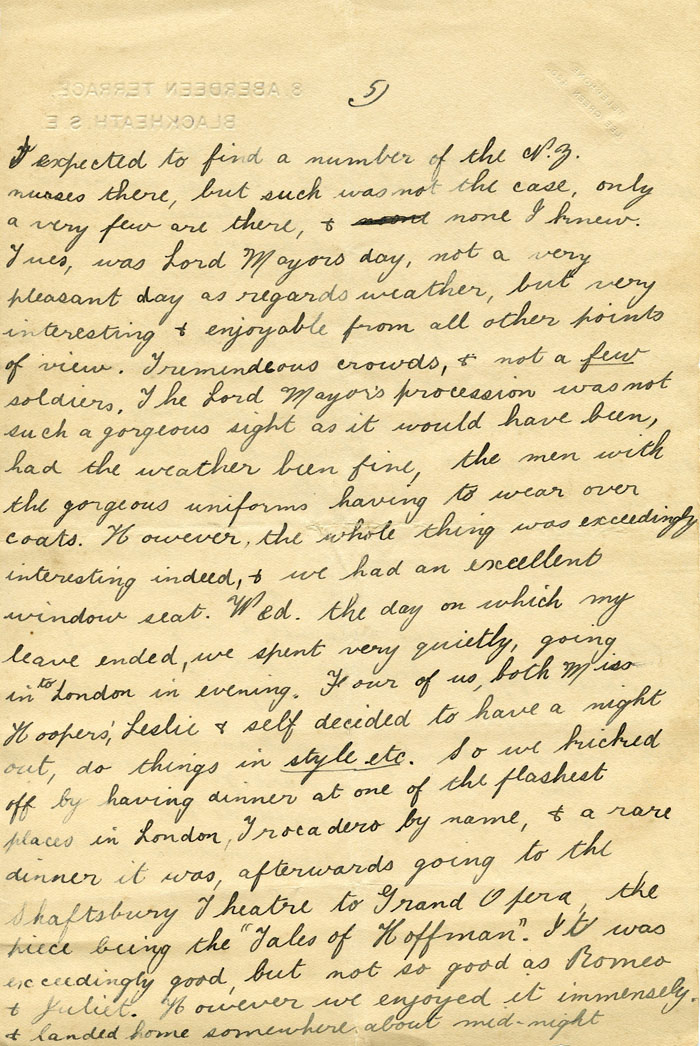 5)
8. ABERDEEN TERRACE,
BLACKHEATH. S.E
I expected to find a number of the N.Z.
nurses there, but such was not the case, only
a very few are there, & none I knew.
Tues, was Lord Mayors day, not a very
pleasant day as regards weather, but very
interesting & enjoyable from all other points
of view. Tremendeous crowds, & not a few
soldiers. The Lord Mayor's procession was not
such a gorgeous sight as it would have been,
had the weather been fine, the men with
the gorgeous uniforms having to wear over
coats. However, the whole thing was exceedingly
interesting indeed, & we had an excellent
window seat. Wed. the day on which my
leave ended, we spent very quietly, going
in to London in evening. Four of us, both Miss
Hoopers', Leslie & self decided to have a night
out, do things in style etc. So we kicked
off by having dinner at one of the flashest
places in London, Trocadero by name, & a rare
dinner it was, afterwards going to the
Shaftsbury Theatre to Grand Opera, the
piece being the "Tales of Hoffman". It was
exceedingly good, but not so good as Romeo
& Juliet. However we enjoyed it immensely.
& landed home somewhere about mid-night